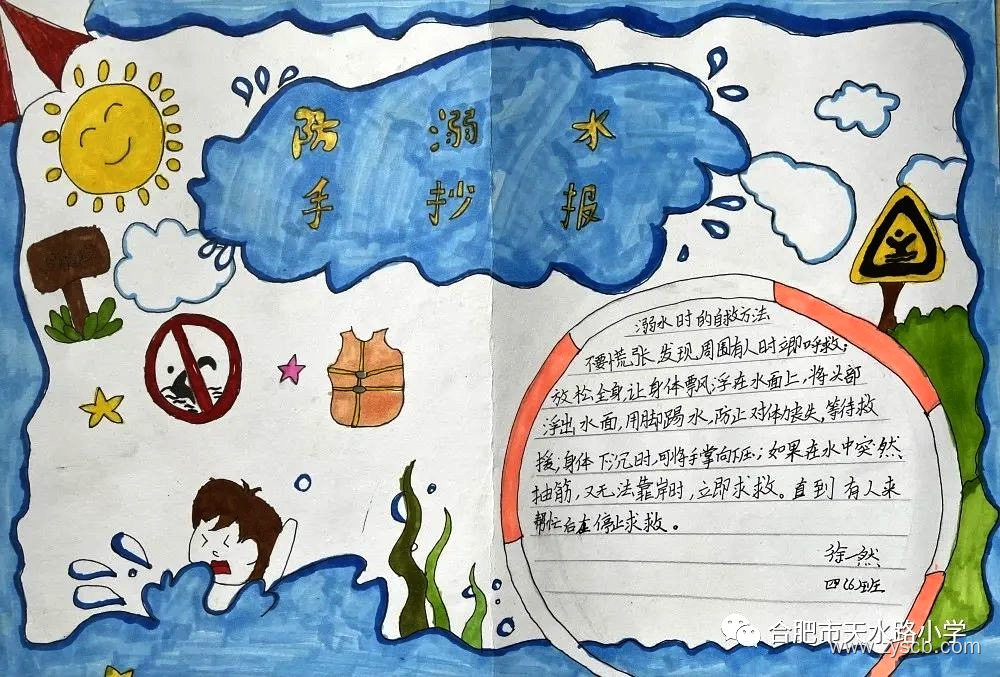 防溺水
手抄报
溺水时的自救方法
不要慌张,发现周围有人时立即呼救;
放松全身,让身体飘浮在水面上,将头部
浮出水面,用脚踢水,防止对体力丧失,等待救
援;身体下沉时,可将手掌向下压;如果在水中突然
抽筋,又无法靠岸时,立即求救。直到有人来
帮忙后在停止求救。
徐一然
四(6)班
合肥市天水路小学
www.zyscb.com